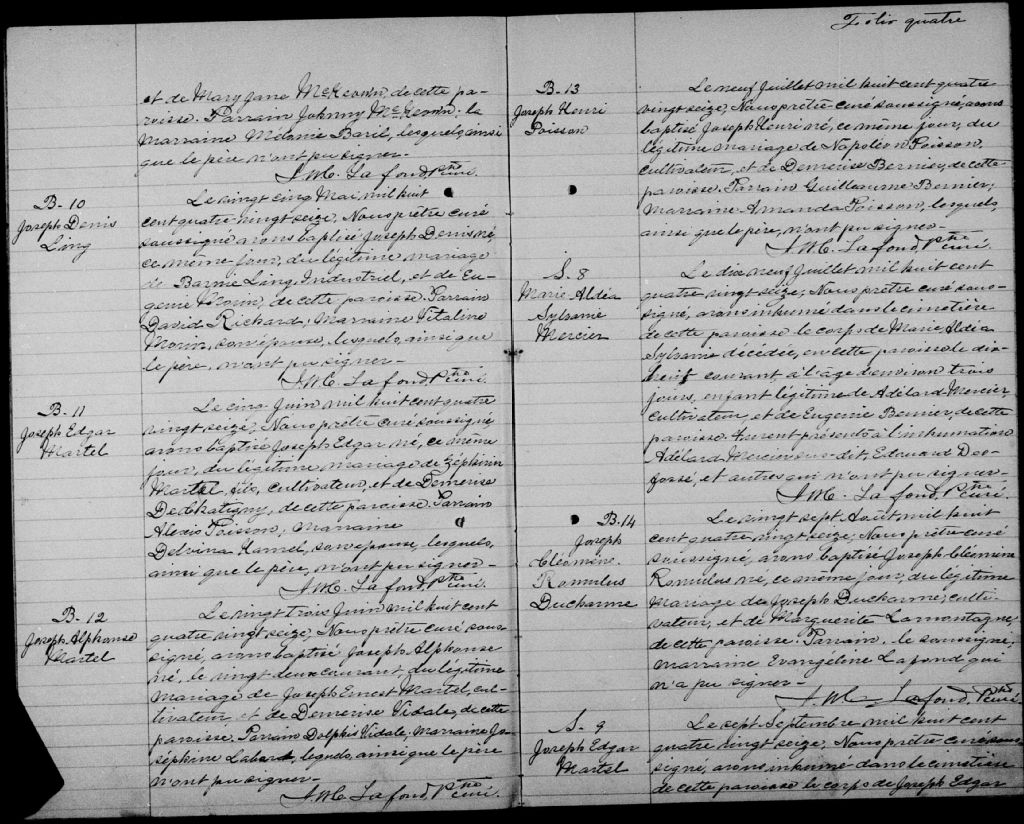 et de Mary Jane McKeown, de cette pa-
roisse. Parrain Johnny McKeown; la
Marraine Mélanie Baril, lesquels, ainsi
que le père n'ont pu signer.-
J.M.C. Lafond, Ptre Curé.
B-10
Joseph Denis
Ling
Le vingt cinq Mai mil huit
cent quatre vingt seize, Nous prêtre curé
soussigné avons baptisé Joseph Denis né,
ce même jour, du légitime mariage
de Barnie Ling, Industriel, et de Eu-
genie Morin, de cette paroisse. Parrain
David Richard; Marraine Vitaline
Morin, son épouse, lesquels, ainsi que
le père, n'ont pu signer-
J.M.C. Lafond, Ptre Curé.
B-11
Joseph Edgar
Martel
Le cinq Juin mil huit cent quatre
vingt seize; Nous prêtre curé soussigné
avons baptisé Joseph Edgar né, ce même
jour, du légitime mariage de Zéphirin
Martel, fils, cultivateur, et de Demerise
DeChatigny, de cette paroisse. Parrain
Alexis Poisson, Marraine
Delvina Hamel, son epouse, lesquels,
ainsi que le père, n'ont pu signer-
J.M.C. Lafond, Ptre Curé.
B-12
Joseph Alphonse
Martel
Le vingt trois Juin mil huit cent
quatre vingt seize, Nous prêtre curé sous-
signé, avons baptisé Joseph Alphonse
né, le vingt deux courant, du légitime
mariage de Joseph Ernest Martel, cul-
tivateur, et de Demerise Vidale, de cette
paroisse. Parrain Dolphis Vidale, Marraine Jo-
séphine lesquels, ainsi que le père
n'ont pu signer-
J.M.C. Lafond, Ptre Curé.
Folio quatre
B-13
Joseph Henri
Poisson
Le neuf Juillet mil huit cent quatre
vingt seize, Nous prêtre curé soussigné, avons
baptisé Joseph Henri né, ce même jour, du
légitime mariage de Napoléon Poisson,
cultivateur, et de Demerise Bernier, de cette
paroisse. Parrain Guilleaume Bernier;
Marraine Amanda Poisson, lesquels,
ainsi que le père, n'ont pu signer-
J.M.C. Lafond, Ptre Curé.
S. 8
Marie Aldéa
Sylvanie
Mercier
Le dix neuf Juillet mil huit cent
quatre vingt seize; Nous prêtre curé sous-
signé, avons inhumé dans le cimetière
de cette paroisse le corps de Marie Aldéa
Sylvanie décédée, en cette paroisse le dix
huit courant, à l'âge d'environ trois
jours, enfant légitime de Adélard Mercier,
cultivateur, et de Eugenie Bernier, de cette
paroisse. Furent présents à l'inhumation
Adélard Mercier sus-dit, Edouard Des-
forsé, et autres qui n'ont pu signer-
J.M.C. Lafond, Ptre Curé.
B-14
Joseph
Cléomine
Romulus
Ducharme
Le vingt sept Août mil huit
cent quatre vingt seize; Nous prêtre curé
soussigné, avons baptisé Joseph Cléomine
Romulus né, ce même jour, du légitime
Mariage de Joseph Ducharme, culti-
vateur, et de Marguerite Lamontagne,
de cette paroisse. Parrain, le soussigné;
marraine Evangéline Lafond qui
n'a pu signer-
J.M.C. Lafond, Ptre Curé
S. 9
Joseph Edgar
Martel
Le sept Septembre mil huit cent
quatre vingt seize; Nous prêtre curé sous
signé, avons inhumé dans le cimetière
de cette paroisse le corps de Joseph Edgar